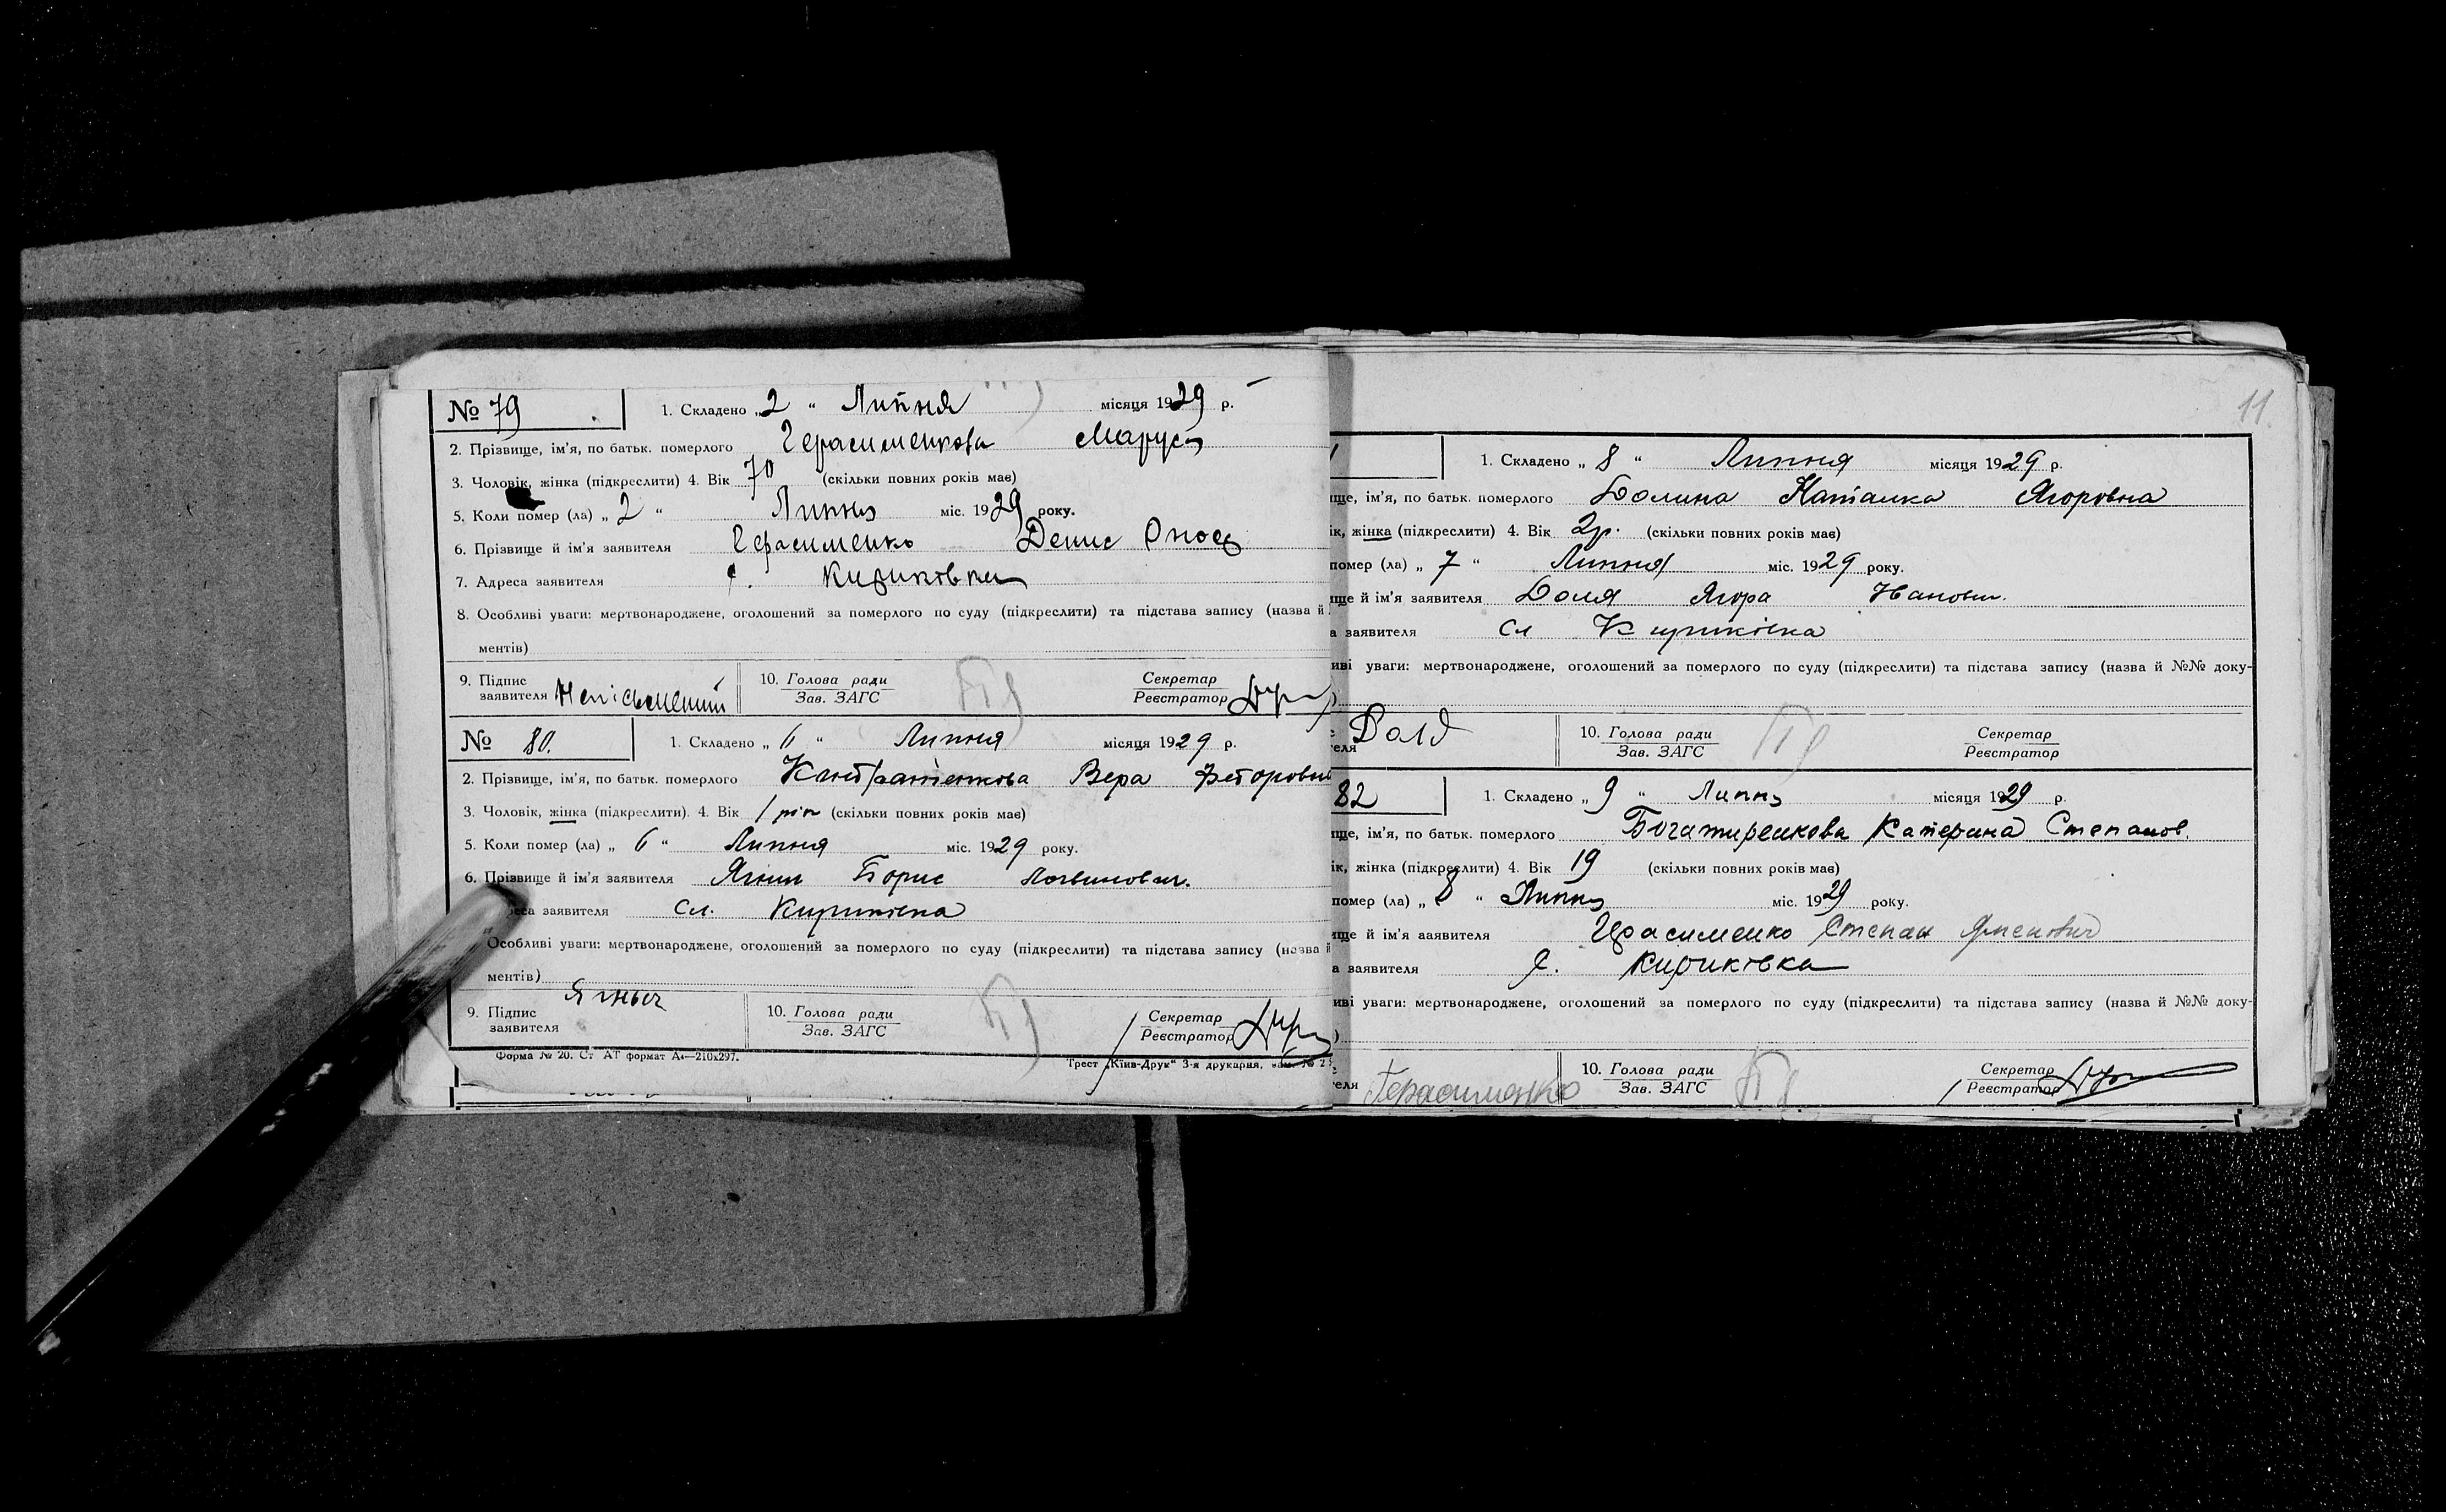 № 79 1. Складено „2“ Липня місяця 1929 р.
2. Прізвище, ім'я, по батьк. померлого Герасименкова Маруся
3. Чоловік, жінка (підкреслити) 4. Вік 70 (скільки повних років має)
5. Коли помер (ла) „2“ Липня міс. 1929 року.
6. Прізвище й ім'я заявителя Герасименко Денис
7. Адреса заявителя с. Кириківка
8. Особливі уваги: мертвонароджене, оголошений за померлого по суду (підкреслити) та підстава запису (назва й
ментів)
9. Підпис заявителя Неписьменний 10. Голова ради Зав. ЗАГС Секретар Реєстратор
№ 80. 1. Складено „6“ Липня місяця 1929 р.
2. Прізвище, ім'я, по батьк. померлого Вера Федоровна
3. Чоловік, жінка (підкреслити). 4. Вік 1 рік (скільки повних років має)
5. Коли помер (ла) „6“ Липня міс. 1929 року.
6. Прізвище й ім'я заявителя Ягнич Борис Логвинович.
еса заявителя сл. Кириківка
Особливі уваги: мертвонароджене, оголошений за померлого по суду (підкреслити) та підстава запису (назва й
ментів)
9. Підпис заявителя Ягныч 10. Голова ради Зав. ЗАГС Секретар Реєстратор
Форма № 20. Ст АТ формат А4—210х297. Трест „Київ-Друк“ 3-я друкарня,
11
1. Складено „8“ Липня місяця 1929 р.
ще, ім'я, по батьк. померлого Долина Наталка Ягоровна
ік, жінка (підкреслити) 4. Вік 2р. (скільки повних років має)
помер (ла) „7“ Липня міс. 1929 року.
ще й ім'я заявителя Доля Ягора Іванович.
а заявителя сл Кириківка
иві уваги: мертвонароджене, оголошений за померлого по суду (підкреслити) та підстава запису (назва й №№ доку-
)
еля Доля 10. Голова ради Зав. ЗАГС Секретар Реєстратор
82 1. Складено „9“ Липня місяця 1929 р.
ще, ім'я, по батьк. померлого Богатиренкова Катерина Степанов.
ік, жінка (підкреслити) 4. Вік 19 (скільки повних років має)
помер (ла) „8“ Липня міс. 1929 року.
ще й ім'я заявителя Герасименко Степан
а заявителя с. Кириківка
иві уваги: мертвонароджене, оголошений за померлого по суду (підкреслити) та підстава запису (назва й №№ доку-
)
еля Герасименко 10. Голова ради Зав. ЗАГС Секретар Реєстратор